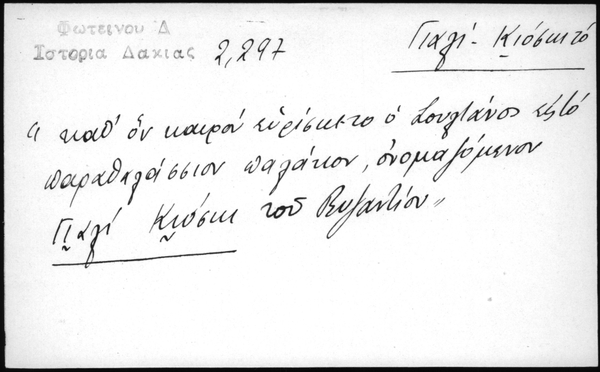 Φωτεινου Δ
Ιστορια Δακιας 2,297
Γιαλί-Κιόσκι τό
"καθ' ὅν καιρόν εὑρίσκετο ὁ Σουλτάνος εἰς τό
παραθαλάσσιον παλάτιον, ὀνομαζόμενον
Γιαλί Κιόσκι τοῦ Βυζαντίου"